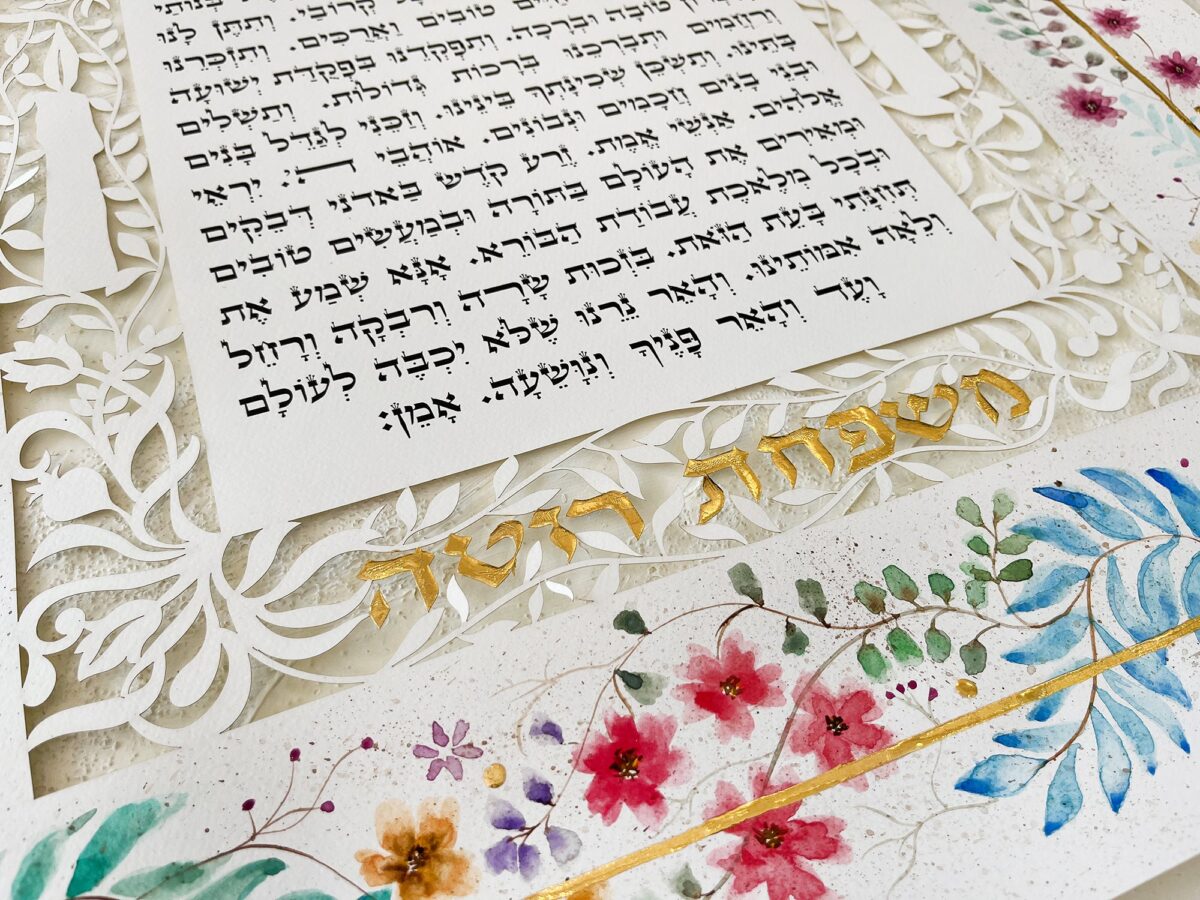 קְרוֹבַי. וְתִתֶּן לָנוּ
טוֹבִים וַאֲרֻכִּים. וְתִזְכְּרֵנוּ
טוֹבָה וּבְרָכָה. וְתִפְקְדֵנוּ בִּפְקֻדַּת יְשׁוּעָה
וְרַחֲמִים וּתְבָרְכֵנוּ בְּרָכוֹת גְּדוֹלוֹת. וְתַשְׁלִים
בָּתֵּינוּ. וְתַשְׁכֵּן שְׁכִינָתְךָ בֵּינֵינוּ. וְזַכֵּנִי לְגַדֵּל בָּנִים
וּבְנֵי בָנִים חֲכָמִים וּנְבוֹנִים. אוֹהֲבֵי ה'. יִרְאֵי
אֱלֹהִים. אַנְשֵׁי אֱמֶת. זֶרַע קֹדֶשׁ בַּאדֹנָי דְּבֵקִים
וּמְאִירִים אֶת הָעוֹלָם בַּתּוֹרָה וּבְמַעֲשִׂים טוֹבִים
וּבְכָל מְלֶאכֶת עֲבוֹדַת הַבּוֹרֵא. אָנָּא שְׁמַע אֶת
תְּחִנָּתִי בָּעֵת הַזֹּאת. בִּזְכוּת שָׂרָה וְרִבְקָה וְרָחֵל
וְלֵאָה אִמּוֹתֵינוּ. וְהָאֵר נֵרֵנוּ שֶׁלֹּא יִכְבֶּה לְעוֹלָם
וָעֶד וְהָאֵר פָּנֶיךָ וְנִוָּשֵׁעָה. אָמֵן:
משפחת ריטה